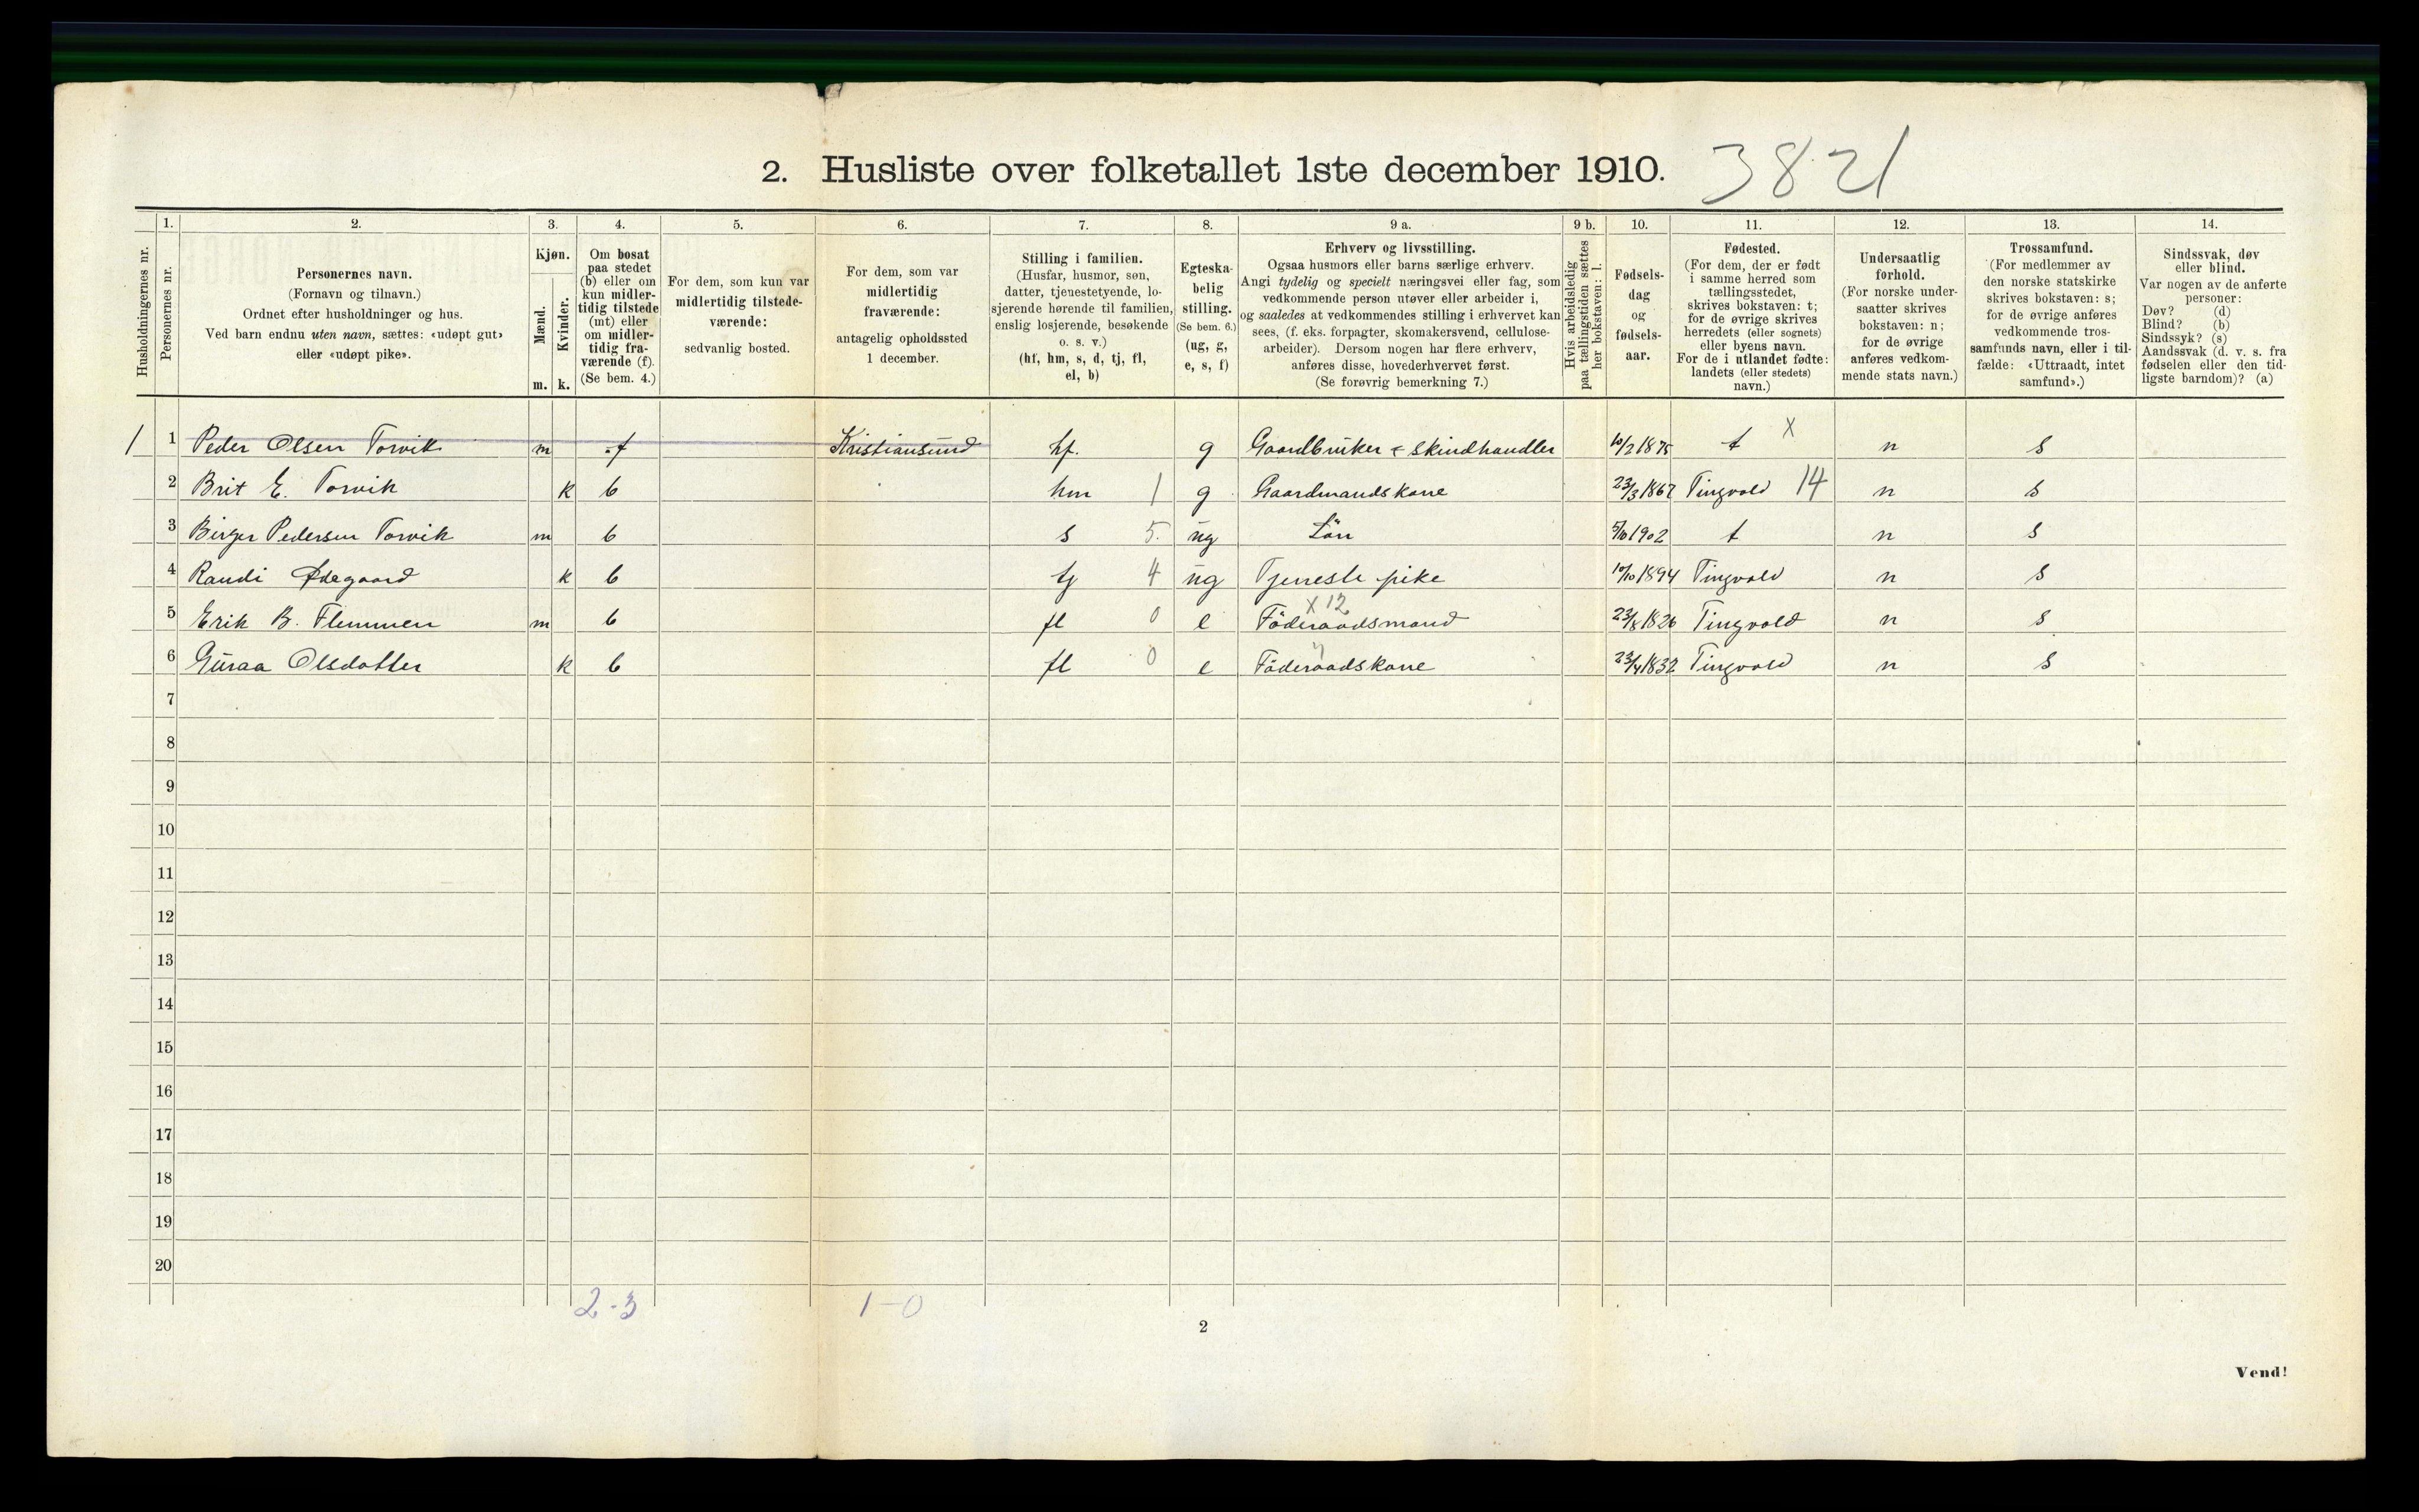 2. Husliste over folketallet 1ste december 1910. 3821
Husholdningernes nr.
1. Personernes nr.
2. Personernes navn.
(Fornavn og tilnavn.)
Ordnet efter husholdninger og hus.
Ved barn endnu uten navn, sættes: «udøpt gut»
eller «udøpt pike».
3. Kjøn.
Mænd. m.
Kvinder. k.
4. Om bosat
paa stedet
(b) eller om
kun midler-
tidig tilstede
(mt) eller
om midler-
tidig fra-
værende (f).
(Se bem. 4.)
5. For dem, som kun var
midlertidig tilstede-
værende:
sedvanlig bosted.
6. For dem, som var
midlertidig
fraværende:
antagelig opholdssted
1 december.
7. Stilling i familien.
(Husfar, husmor, søn,
datter, tjenestetyende, lo-
sjerende hørende til familien,
enslig losjerende, besøkende
o. s. v.)
(hf, hm, s, d, tj, fl,
el, b)
8. Egteska-
belig
stilling.
(Se bem. 6.)
(ug, g,
e, s, f)
9 a. Erhverv og livsstilling.
Ogsaa husmors eller barns særlige erhverv.
Angi tydelig og specielt næringsvei eller fag, som
vedkommende person utøver eller arbeider i,
og saaledes at vedkommendes stilling i erhvervet kan
sees, (f. eks. forpagter, skomakersvend, cellulose-
arbeider). Dersom nogen har flere erhverv,
anføres disse, hovederhvervet først.
(Se forøvrig bemerkning 7.)
9 b. Hvis arbeidsledig
paa tællingstiden sættes
her bokstaven: l.
10. Fødsels-
dag
og
fødsels-
aar.
11. Fødested.
(For dem, der er født
i samme herred som
tællingsstedet,
skrives bokstaven: t;
for de øvrige skrives
herredets (eller sognets)
eller byens navn.
For de i utlandet fødte:
landets (eller stedets)
navn.)
12. Undersaatlig
forhold.
(For norske under-
saatter skrives
bokstaven: n;
for de øvrige
anføres vedkom-
mende stats navn.)
13. Trossamfund.
(For medlemmer av
den norske statskirke
skrives bokstaven: s;
for de øvrige anføres
vedkommende tros-
samfunds navn, eller i til-
fælde: «Uttraadt, intet
samfund».)
14. Sindssvak, døv
eller blind.
Var nogen av de anførte
personer:
Døv? (d)
Blind? (b)
Sindssyk? (s)
Aandssvak (d. v. s. fra
fødselen eller den tid-
ligste barndom)? (a)
1 1 Peder Olsen Torvik m f Kristiansund hf. g Gaardbruker & Skindhandler 10/2 1875 t X n s
2 Brit E. Torvik k b hm 1 g Gaardmandskone 23/3 1867 Tingvold 14 n s
3 Birger Pedersen Torvik m b s 5. ug Sön 5/10 1902 t n s
4 Randi Ødegaard k b tj 4 ug Tjeneste pike 10/10 1894 Tingvold n s
X 12
5 Erik B. Flemmen m b fl 0 e Föderaadsmand 23/8 1826 Tingvold n s
6 Guraa Olsdatter k b fl 0 e Föderaadskone 23/4 1832 Tingvold n s
7
8
9
10
11
12
13
14
15
16
17
18
19
20
2-3 1-0
2
Vend!